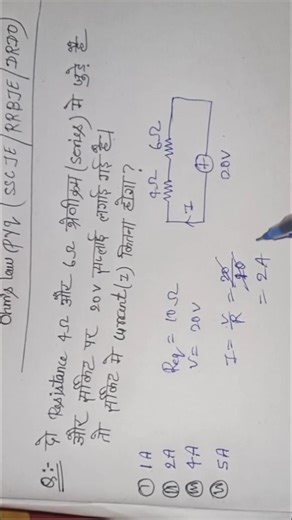 Ohms Law PYQ (SSC JE / RRBJE / DRDO)
Q:- दो Resistance 4Ω और 6Ω श्रेणीक्रम (series) मे जुड़े है
और सर्किट पर 20V सप्लाई लगाई गई है।
तो सर्किट मे current(I) कितना होगा?
(i) 1A
(ii) 2A
(iii) 4A
(iv) 5A
Req = 10Ω
V = 20V
I = V/R = 20/10
= 2A
4Ω 6Ω
I
20V